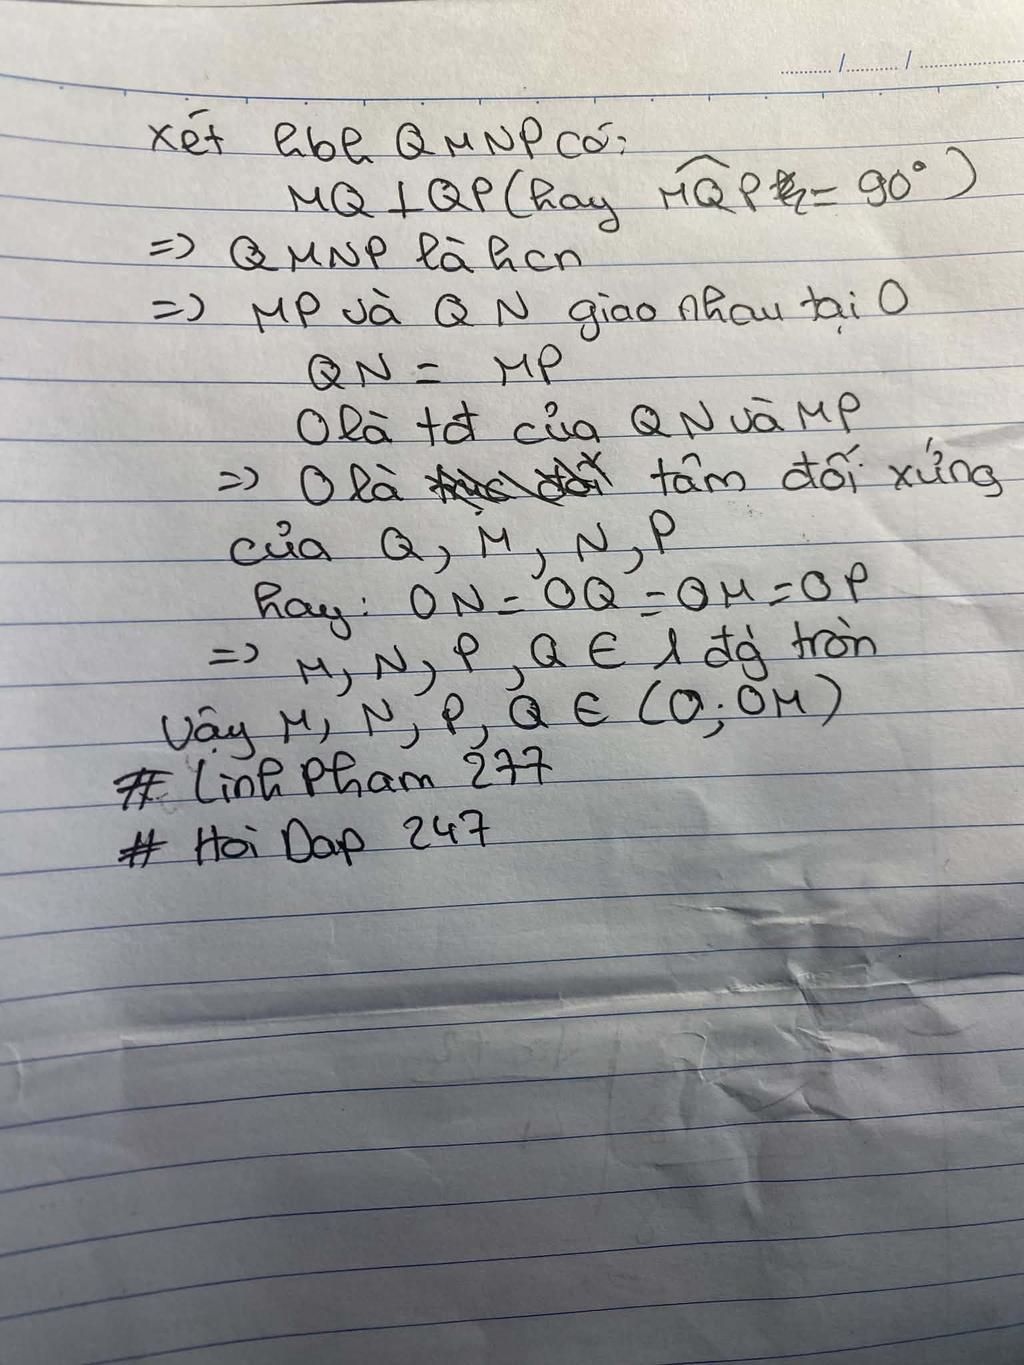 Xét hbh QMNP có:
MQ ⊥ QP (hay M̂QP = 90°)
=> QMNP là hcn
=> MP và QN giao nhau tại O
QN = MP
O là tđ của QN và MP
=> O là tâm đối xứng
của Q, M, N, P
hay: ON = OQ = OM = OP
=> M, N, P, Q ∈ 1 đg tròn
Vậy M, N, P, Q ∈ (O; OM)
# Linh Pham 277
# Hoi Dap 247